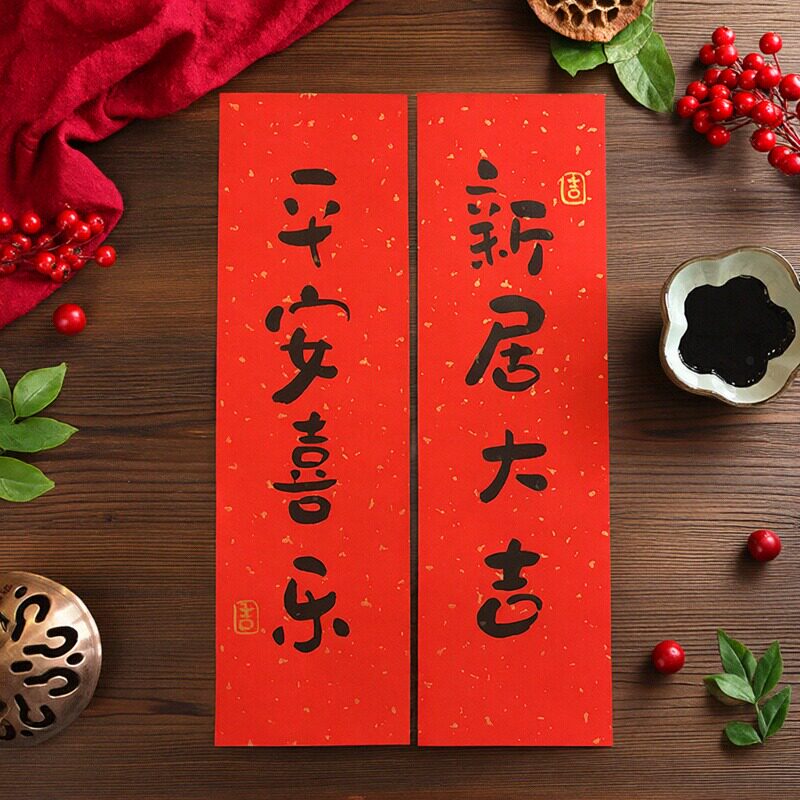 新居大吉
吉
平安喜乐
吉